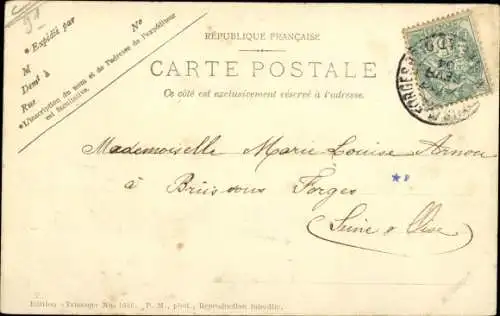 91
* Expédié par
No
M
Demt à
Rue
*L'inscription du nom et de l'adresse de l'expéditeur
est facultative.
RÉPUBLIQUE FRANÇAISE
CARTE POSTALE
Ce côté est exclusivement réservé à l'adresse.
Mademoiselle Marie Louise Arnou
à Briis sous Forges
(Seine & Oise)
Edition « Trianon » No P. M., phot., Reproduction interdite.